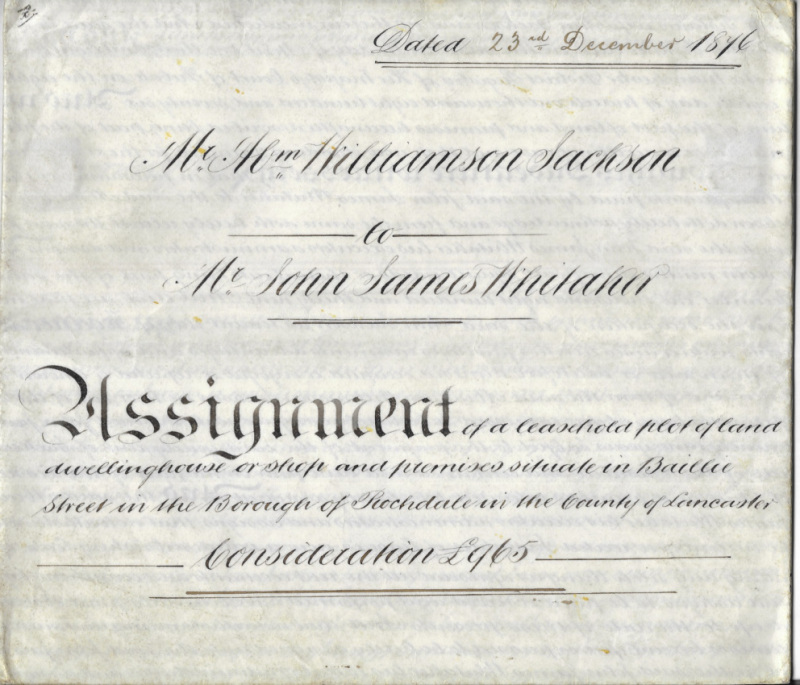 Dated 23rd December 1876
Mr. Abm Williamson Jackson
to
Mr John James Whitaker
Assignment of a leasehold plot of land
dwellinghouse or shop and premises situate in Baillie
Street in the Borough of Rochdale in the County of Lancaster
Consideration £965